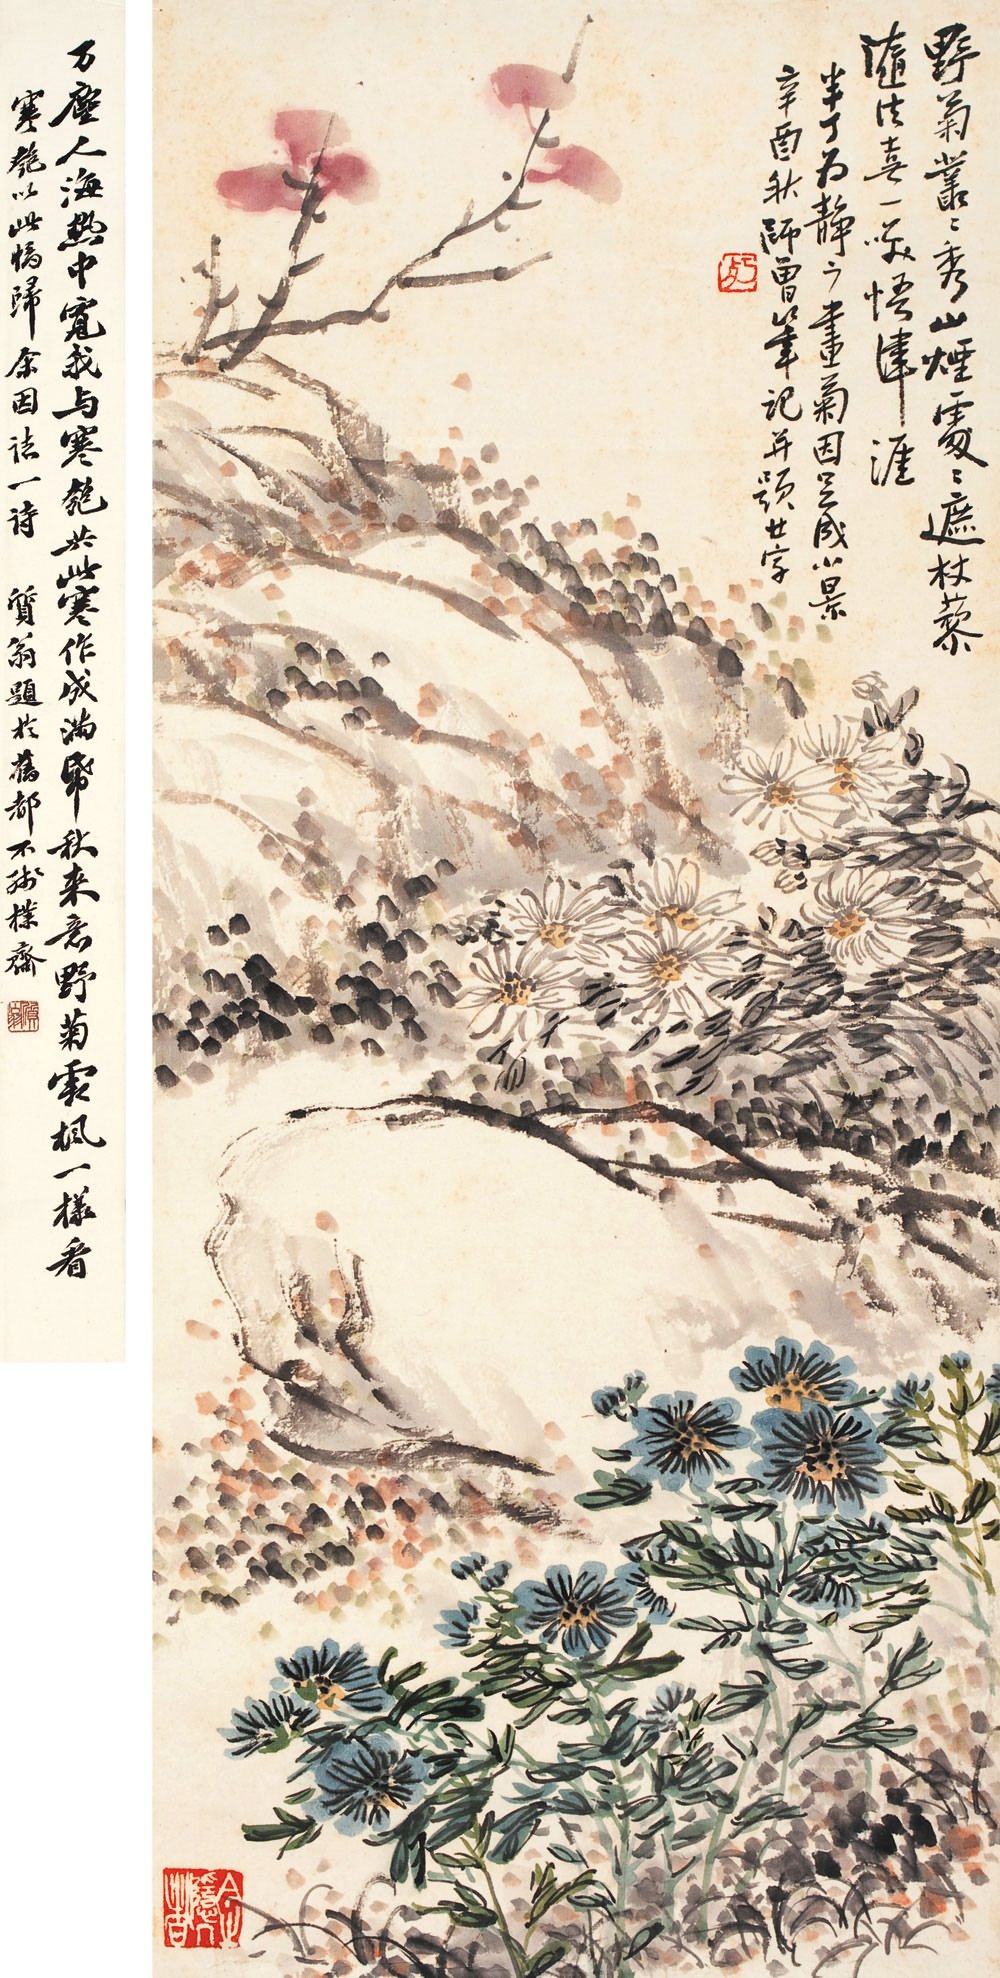 野菊叢〻秀山煙處〻遮杖藜
隨法喜一笑悟津涯
半丁為靜戶畫菊因足成小景
辛酉秋師曾筆記并題廿字
万塵人海熱中寬我与寒匏共此寒作成滿帋秋来意野菊霜楓一樣看
寒匏以此幅歸余因詰一詩 質翁題於舊都不彫樸齋